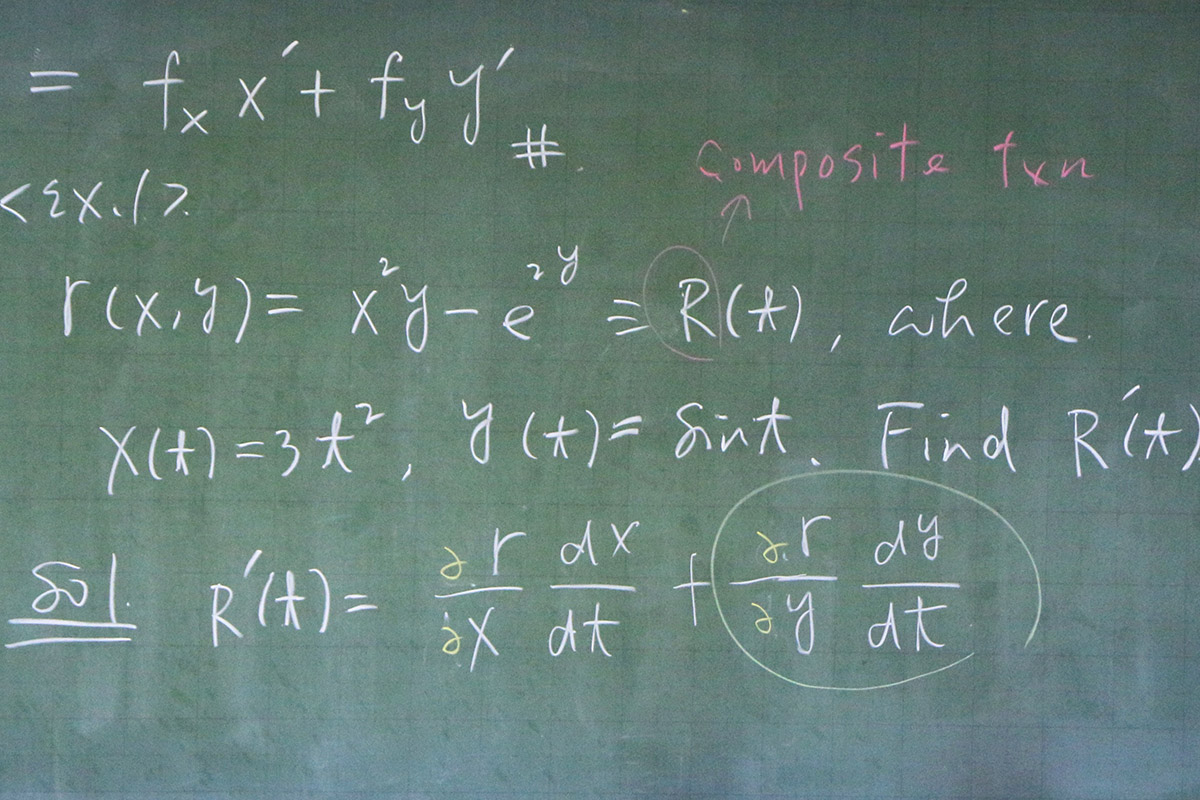 = fₓ x′ + f_y y′ #.
composite fxn
<Ex.1>
r(x,y) = x²y − e^{2y} ≡ R(t), where
x(t) = 3t², y(t) = sint. Find R′(t)
Sol. R′(t) = ∂r/∂x dx/dt + ∂r/∂y dy/dt